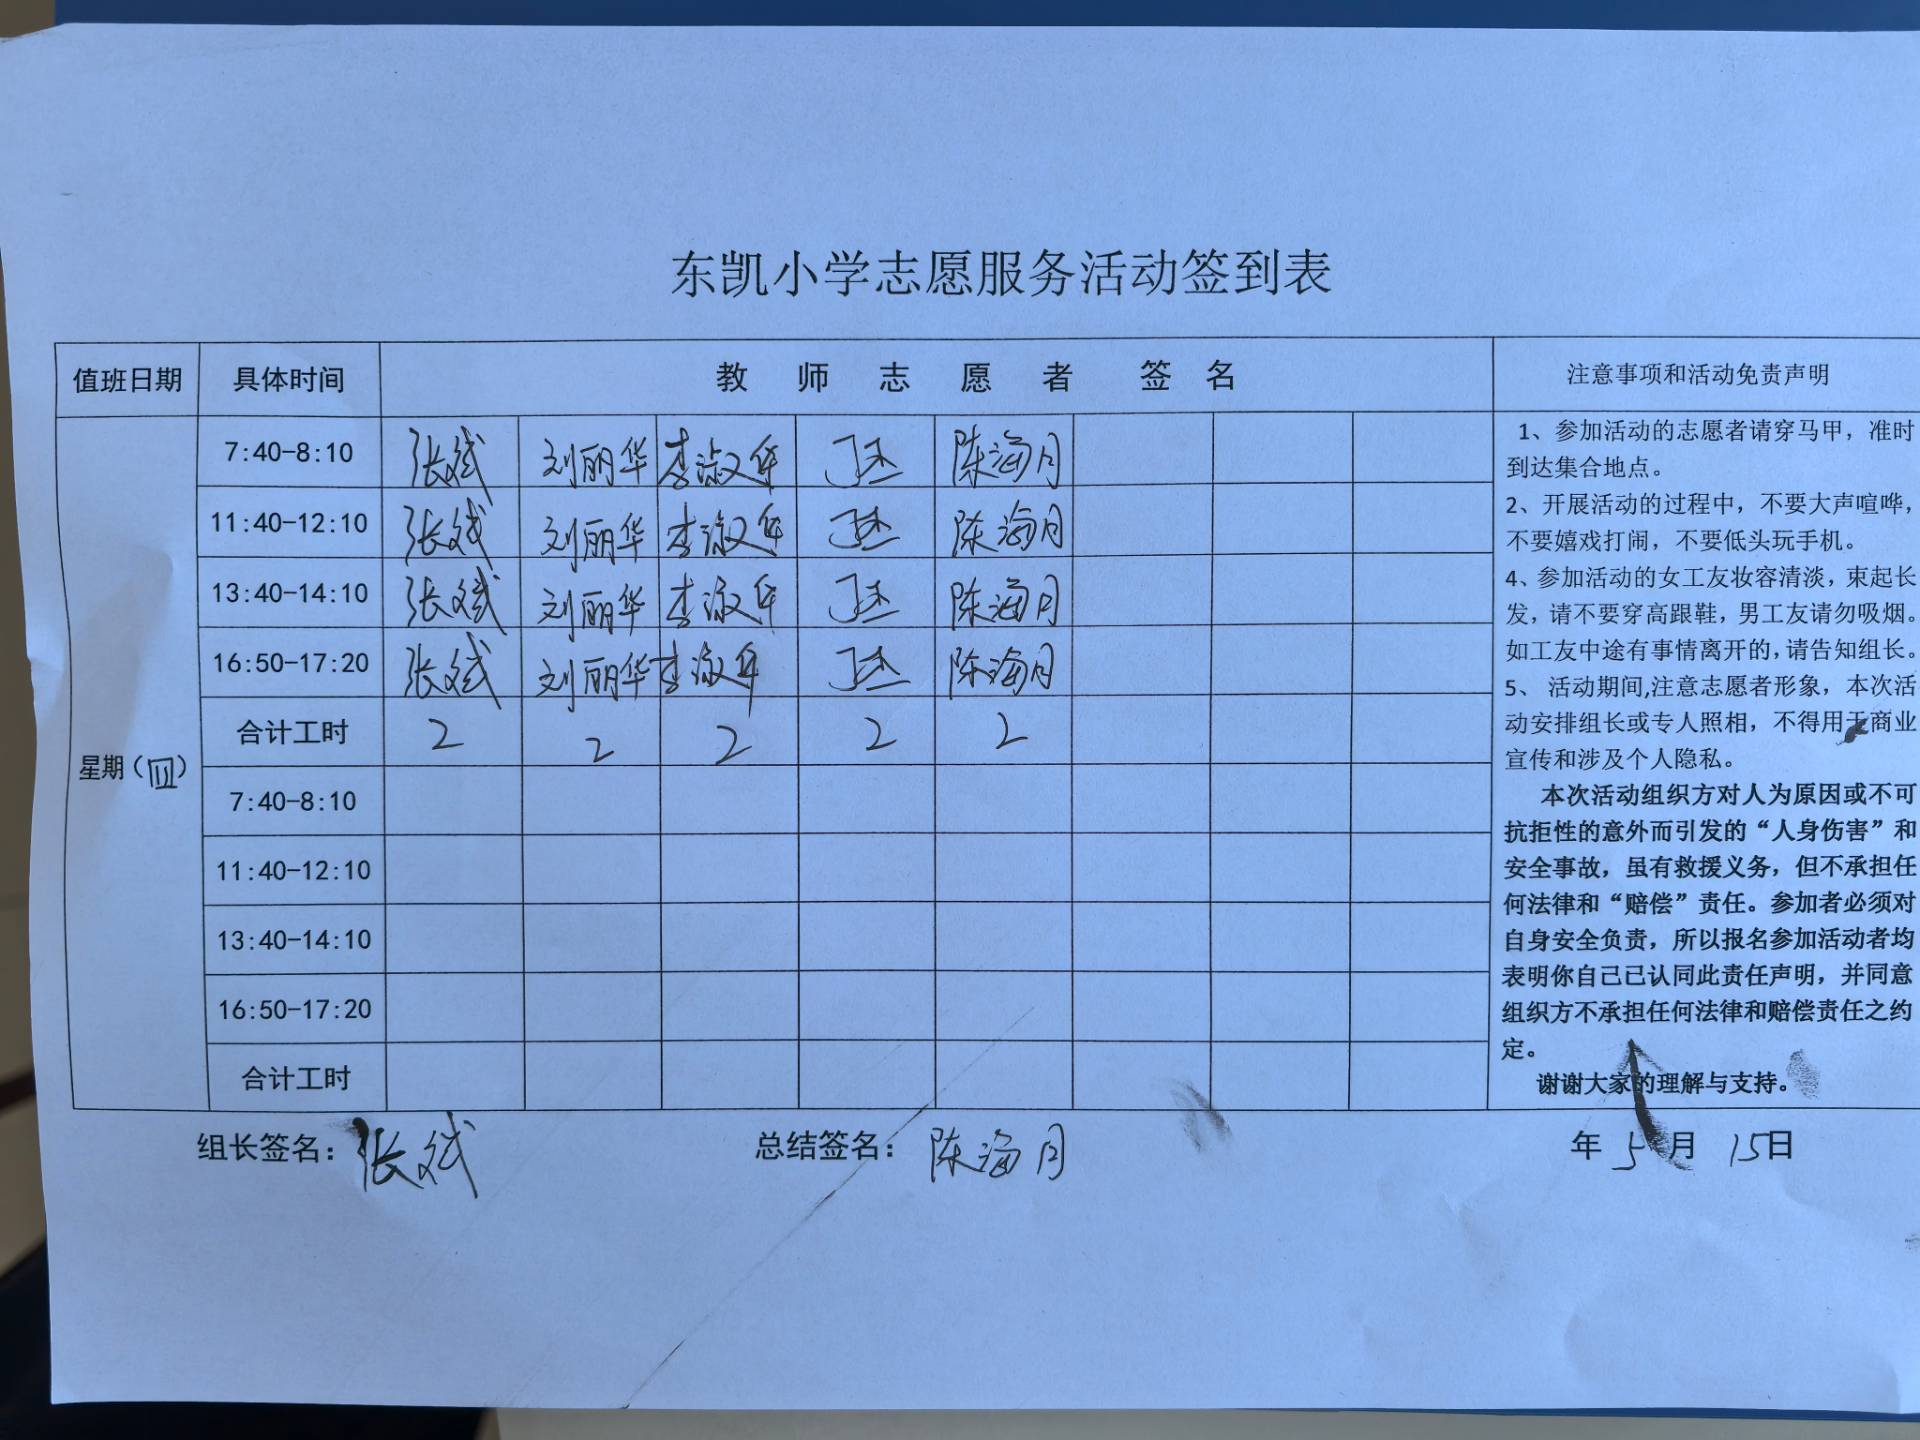 东凯小学志愿服务活动签到表
值班日期 具体时间 教师志愿者签名 注意事项和活动免责声明
星期(四)
7:40-8:10 张斌 刘丽华 李淑华 陈海月
11:40-12:10 张斌 刘丽华 李淑华 陈海月
13:40-14:10 张斌 刘丽华 李淑华 陈海月
16:50-17:20 张斌 刘丽华 李淑华 陈海月
合计工时 2 2 2 2 2
7:40-8:10
11:40-12:10
13:40-14:10
16:50-17:20
合计工时
1、参加活动的志愿者请穿马甲，准时
到达集合地点。
2、开展活动的过程中，不要大声喧哗，
不要嬉戏打闹，不要低头玩手机。
4、参加活动的女工友妆容清淡，束起长
发，请不要穿高跟鞋，男工友请勿吸烟。
如工友中途有事情离开的，请告知组长。
5、 活动期间,注意志愿者形象，本次活
动安排组长或专人照相，不得用于商业
宣传和涉及个人隐私。
本次活动组织方对人为原因或不可
抗拒性的意外而引发的“人身伤害”和
安全事故，虽有救援义务，但不承担任
何法律和“赔偿”责任。参加者必须对
自身安全负责，所以报名参加活动者均
表明你自己已认同此责任声明，并同意
组织方不承担任何法律和赔偿责任之约
定。
谢谢大家的理解与支持。
组长签名：张斌 总结签名：陈海月 年 5月 15日